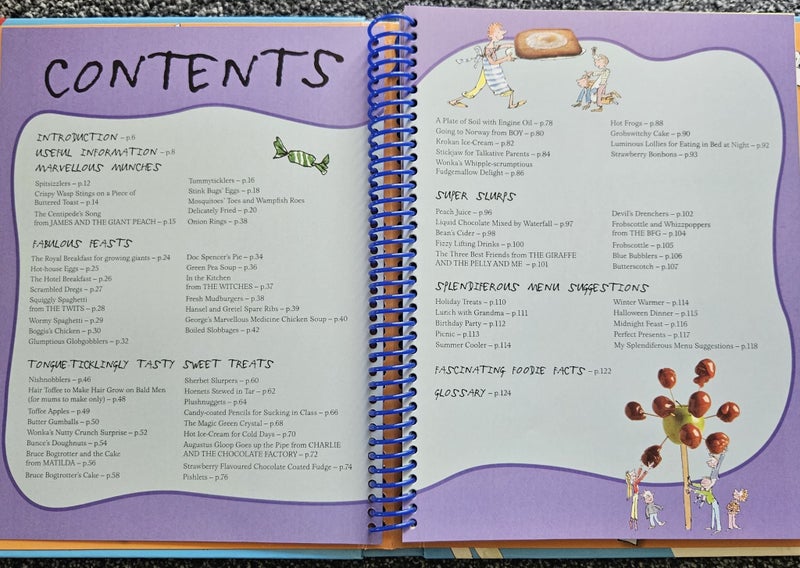 CONTENTS
INTRODUCTION – p.6
USEFUL INFORMATION – p.8
MARVELLOUS MUNCHES
Spitsizzlers – p.12
Crispy Wasp Stings on a Piece of
Buttered Toast – p.14
The Centipede's Song
from JAMES AND THE GIANT PEACH – p.15
Tummyticklers – p.16
Stink Bugs' Eggs – p.18
Mosquitoes' Toes and Wampfish Roes
Delicately Fried – p.20
Onion Rings – p.38
FABULOUS FEASTS
The Royal Breakfast for growing giants – p.24
Hot-house Eggs – p.25
The Hotel Breakfast – p.26
Scrambled Dregs – p.27
Squiggly Spaghetti
from THE TWITS – p.28
Wormy Spaghetti – p.29
Boggis's Chicken – p.30
Glumptious Globgobblers – p.32
Doc Spencer's Pie – p.34
Green Pea Soup – p.36
In the Kitchen
from THE WITCHES – p.37
Fresh Mudburgers – p.38
Hansel and Gretel Spare Ribs – p.39
George's Marvellous Medicine Chicken Soup – p.40
Boiled Slobbages – p.42
TONGUE-TICKLINGLY TASTY SWEET TREATS
Nishnobblers – p.46
Hair Toffee to Make Hair Grow on Bald Men
(for mums to make only) – p.48
Toffee Apples – p.49
Butter Gumballs – p.50
Wonka's Nutty Crunch Surprise – p.52
Bunce's Doughnuts – p.54
Bruce Bogtrotter and the Cake
from MATILDA – p.56
Bruce Bogtrotter's Cake – p.58
Sherbet Slurpers – p.60
Hornets Stewed in Tar – p.62
Plushnuggets – p.64
Candy-coated Pencils for Sucking in Class – p.66
The Magic Green Crystal – p.68
Hot Ice-Cream for Cold Days – p.70
Augustus Gloop Goes up the Pipe from CHARLIE
AND THE CHOCOLATE FACTORY – p.72
Strawberry Flavoured Chocolate Coated Fudge – p.74
Pishlets – p.76
A Plate of Soil with Engine Oil – p.78
Going to Norway from BOY – p.80
Krokan Ice-Cream – p.82
Stickjaw for Talkative Parents – p.84
Wonka's Whipple-scrumptious
Fudgemallow Delight – p.86
Hot Frogs – p.88
Grobswitchy Cake – p.90
Luminous Lollies for Eating in Bed at Night – p.92
Strawberry Bonbons – p.93
SUPER SLURPS
Peach Juice – p.96
Liquid Chocolate Mixed by Waterfall – p.97
Bean's Cider – p.98
Fizzy Lifting Drinks – p.100
The Three Best Friends from THE GIRAFFE
AND THE PELLY AND ME – p.101
Devil's Drenchers – p.102
Frobscottle and Whizzpoppers
from THE BFG – p.104
Frobscottle – p.105
Blue Bubblers – p.106
Butterscotch – p.107
SPLENDIFEROUS MENU SUGGESTIONS
Holiday Treats – p.110
Lunch with Grandma – p.111
Birthday Party – p.112
Picnic – p.113
Summer Cooler – p.114
Winter Warmer – p.114
Halloween Dinner – p.115
Midnight Feast – p.116
Perfect Presents – p.117
My Splendiferous Menu Suggestions – p.118
FASCINATING FOODIE FACTS – p.122
GLOSSARY – p.124